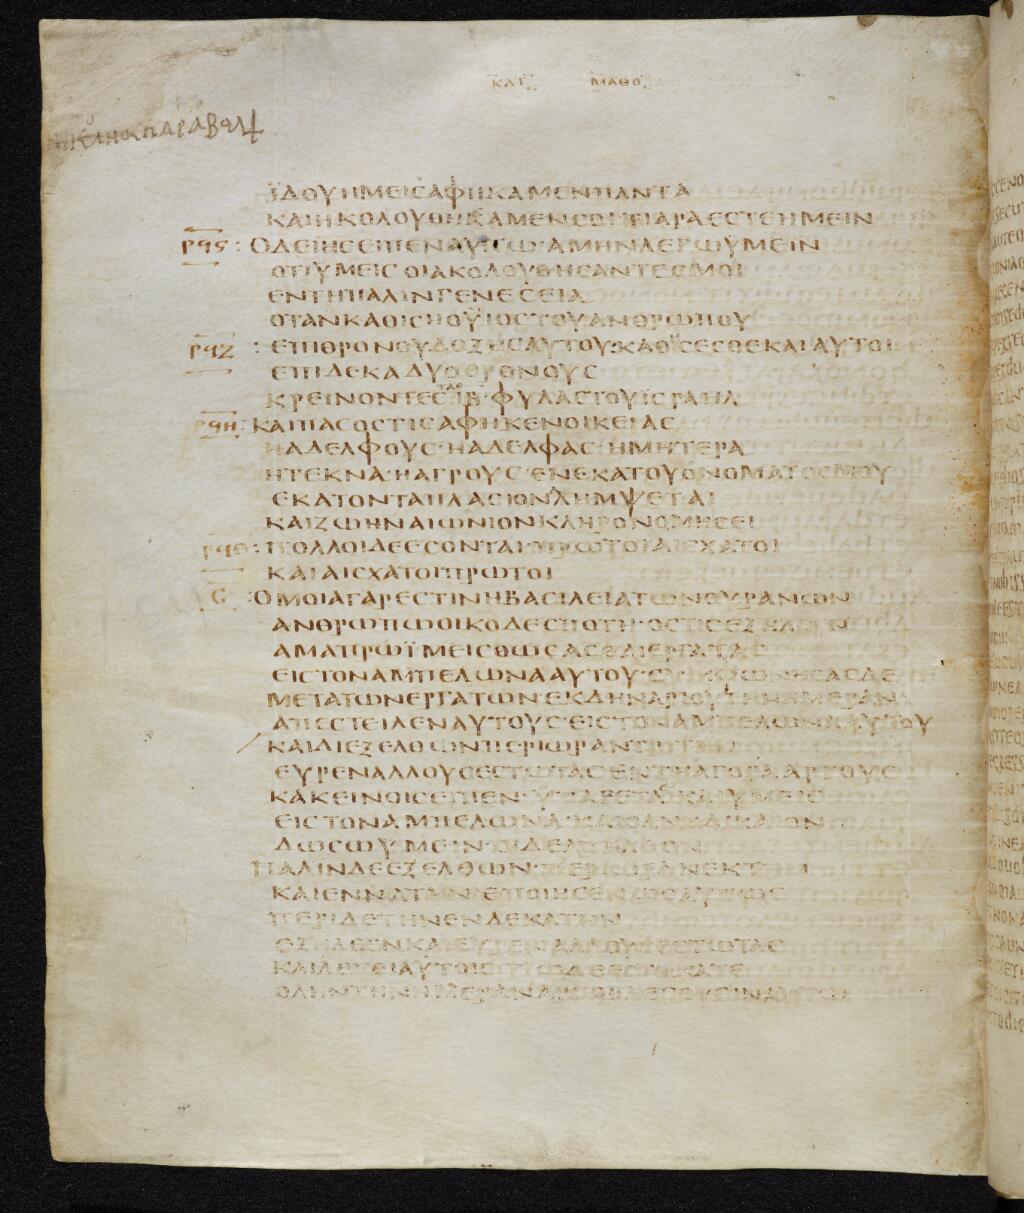 ΚΑΤ ΜΑΘΘ
ΪΔΟΥΗΜΕΙΣΑΦΗΚΑΜΕΝΠΑΝΤΑ
ΚΑΙΗΚΟΛΟΥΘΗΚΑΜΕΝΣΟΙ·ΤΙΑΡΑΕΣΤΕΗΜΕΙΝ
ΡϤϚ : ΟΔΕΙΗΣΕΙΠΕΝΑΥΤΩ·ΑΜΗΝΛΕΓΩΫΜΕΙΝ
ΟΤΙΫΜΕΙΣΟΙΑΚΟΛΟΥΘΗΣΑΝΤΕΣΜΟΙ
ΕΝΤΗΠΑΛΙΝΓΕΝΕΣΕΙΑ
ΟΤΑΝΚΑΘΙΣΗΟΥΪΟΣΤΟΥΑΝΘΡΩΠΟΥ
ΡϤΖ : ΕΠΙΘΡΟΝΟΥΔΟΞΗΣΑΥΤΟΥ:ΚΑΘΙΣΕΣΘΕΚΑΙΑΥΤΟΙ
ΕΠΙΔΕΚΑΔΥΟΘΡΟΝΟΥΣ
ΚΡΕΙΝΟΝΤΕΣΤΑΣΙΒ·ΦΥΛΑΣΤΟΥΪΣΡΑΗΛ
ΡϤΗ : ΚΑΙΠΑΣΟΣΤΙΣΑΦΗΚΕΝΟΙΚΕΙΑΣ
ΗΑΔΕΛΦΟΥΣ·ΗΑΔΕΛΦΑΣ·ΗΜΗΤΕΡΑ
ΗΤΕΚΝΑ·ΗΑΓΡΟΥΣ·ΕΝΕΚΑΤΟΥΟΝΟΜΑΤΟΣΜΟΥ
ΕΚΑΤΟΝΤΑΠΛΑΣΙΟΝΛΗΜΨΕΤΑΙ
ΚΑΙΖΩΗΝΑΙΩΝΙΟΝΚΛΗΡΟΝΟΜΗΣΕΙ
ΡϤΘ : ΠΟΛΛΟΙΔΕΕΣΟΝΤΑΙ·ΠΡΩΤΟΙΑΙΣΧΑΤΟΙ
ΚΑΙΑΙΣΧΑΤΟΙΠΡΩΤΟΙ
Σ : ΟΜΟΙΑΓΑΡΕΣΤΙΝΗΒΑΣΙΛΕΙΑΤΩΝΟΥΡΑΝΩΝ
ΑΝΘΡΩΠΩΟΙΚΟΔΕΣΠΟΤΗ·ΟΣΤΙΣΕΞΗΛΘΕΝ
ΑΜΑΠΡΩΪΜΕΙΣΘΩΣΑΣΘΑΙΕΡΓΑΤΑΣ
ΕΙΣΤΟΝΑΜΠΕΛΩΝΑΑΥΤΟΥ·ΣΥΜΦΩΝΗΣΑΣΔΕ
ΜΕΤΑΤΩΝΕΡΓΑΤΩΝ·ΕΚΔΗΝΑΡΙΟΥΤΗΝΗΜΕΡΑΝ
ΑΠΕΣΤΕΙΛΕΝΑΥΤΟΥΣ·ΕΙΣΤΟΝΑΜΠΕΛΩΝΑΑΥΤΟΥ
ΚΑΙΔΙΕΞΕΛΘΩΝΠΕΡΙΩΡΑΝΤΡΙΤΗΝ
ΕΥΡΕΝΑΛΛΟΥΣΕΣΤΩΤΑΣΕΝΤΗΑΓΟΡΑΑΡΓΟΥΣ
ΚΑΚΕΙΝΟΙΣΕΙΠΕΝ·ΥΠΑΓΕΤΑΙΚΑΙΥΜΕΙΣ
ΕΙΣΤΟΝΑΜΠΕΛΩΝΑ·ΚΑΙΟΑΝΗΔΙΚΑΙΟΝ
ΔΩΣΩΫΜΕΙΝ·ΟΙΔΕΑΠΗΛΘΟΝ
ΠΑΛΙΝΔΕΕΞΕΛΘΩΝ·ΠΕΡΙΩΡΑΝΕΚΤ
ΚΑΙΕΝΝΑΤΗΝ·ΕΠΟΙΗΣΕΝΩΣΑΥΤΩΣ
ΠΕΡΙΔΕΤΗΝΕΝΔΕΚΑΤΗΝ
ΕΞΗΛΘΕΝΚΑΙΕΥΡΕΝΑΛΛΟΥΣΕΣΤΩΤΑΣ
ΚΑΙΛΕΓΕΙΑΥΤΟΙΣ·ΤΙΩΔΕΕΣΤΗΚΑΤΕ
ΟΛΗΝΤΗΝΗΜΕΡΑΝΑΡΓΟΙ·ΛΕΓΟΥΣΙΝΑΥΤΩ